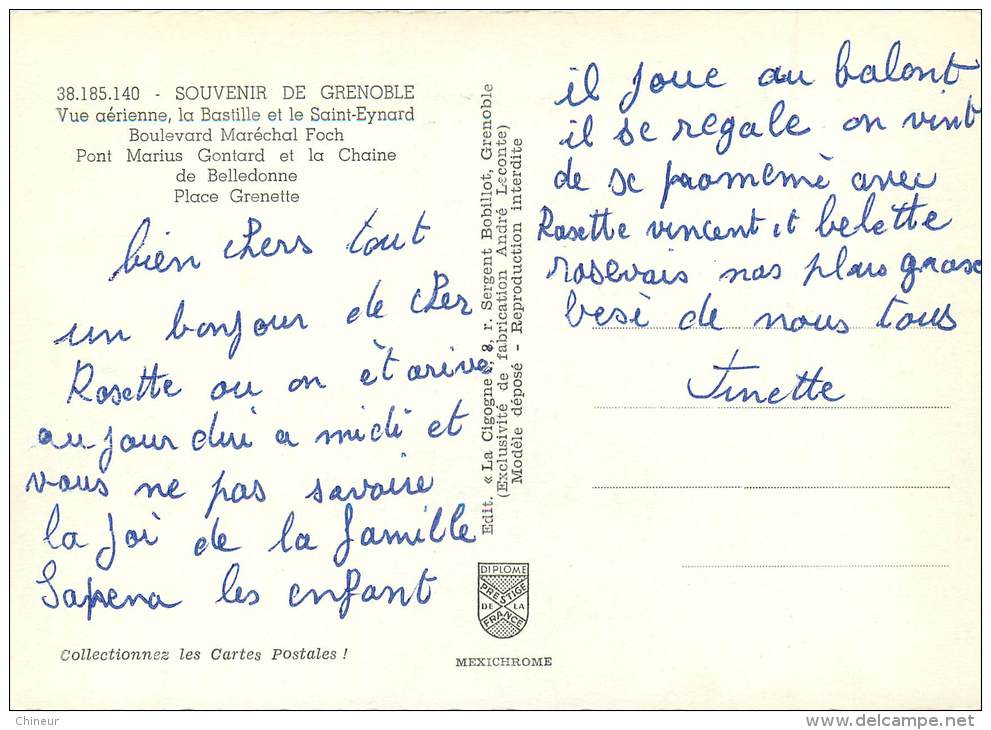 38.185.140 - SOUVENIR DE GRENOBLE
Vue aérienne, la Bastille et le Saint-Eynard
Boulevard Maréchal Foch
Pont Marius Gontard et la Chaine
de Belledonne
Place Grenette
bien chers tout
un bonjour de cher
Rosette ou on èt arive
au jour dui a midi et
vous ne pas savoire
la joi de la famille
Sapena les enfant
Collectionnez les Cartes Postales !
Edit. « La Cigogne », 8, r. Sergent Bobillot, Grenoble
(Exclusivité de fabrication André Leconte)
Modèle déposé - Reproduction interdite
DIPLOME
PRESTIGE
DE LA
FRANCE
MEXICHROME
il joue au balont
il se regale on vint
de se promemè avec
Rosette vincent et belette
rosevais nos plus grose
besè de nous tous
Finette
Chineur
http://www.delcampe.net